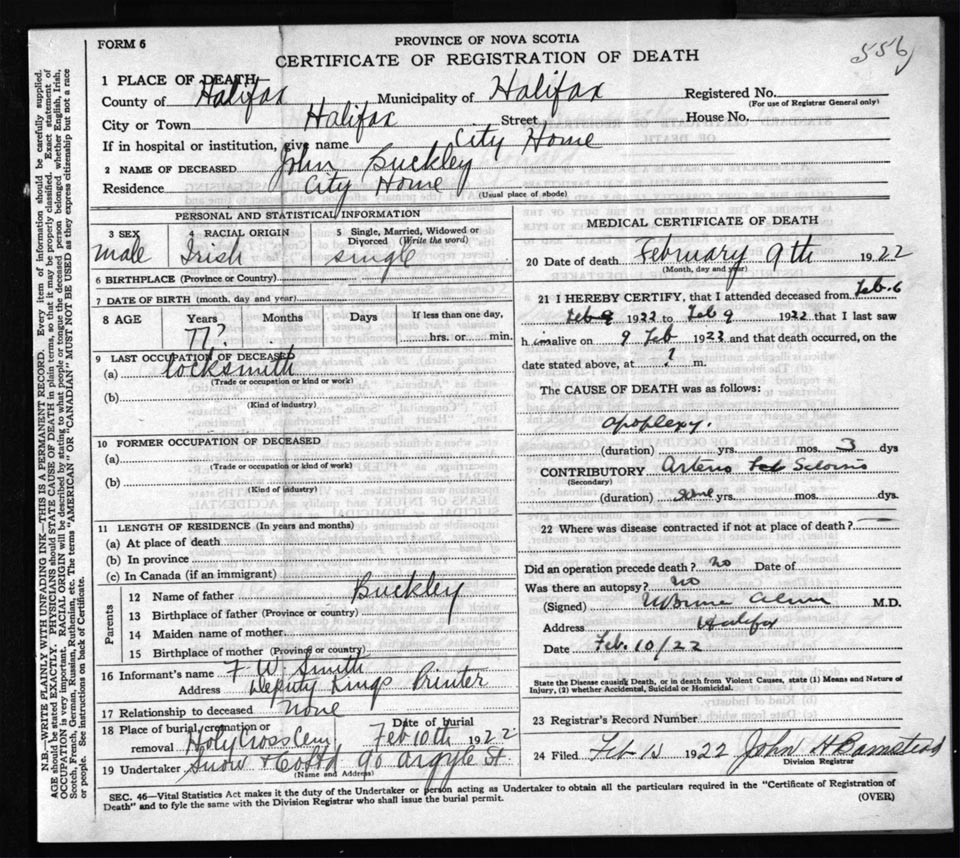 FORM 6
PROVINCE OF NOVA SCOTIA
CERTIFICATE OF REGISTRATION OF DEATH
556
1 PLACE OF DEATH
County of Halifax Municipality of Halifax Registered No.
(For use of Registrar General only)
City or Town Halifax Street House No.
If in hospital or institution, give name City Home
2 NAME OF DECEASED John Buckley
Residence City Home
(Usual place of abode)
PERSONAL AND STATISTICAL INFORMATION
3 SEX 4 RACIAL ORIGIN 5 Single, Married, Widowed or Divorced (Write the word)
male Irish single
6 BIRTHPLACE (Province or Country)
7 DATE OF BIRTH (month, day and year)
8 AGE Years Months Days If less than one day,
77? hrs. or min.
9 LAST OCCUPATION OF DECEASED
(a) locksmith
(Trade or occupation or kind or work)
(b)
(Kind of industry)
10 FORMER OCCUPATION OF DECEASED
(a)
(Trade or occupation or kind or work)
(b)
(Kind of industry)
11 LENGTH OF RESIDENCE (In years and months)
(a) At place of death
(b) In province
(c) In Canada (if an immigrant)
Parents
12 Name of father Buckley
13 Birthplace of father (Province or country)
14 Maiden name of mother
15 Birthplace of mother (Province or country)
16 Informant's name F W Smith
Address Deputy Kings Printer
17 Relationship to deceased none
18 Place of burial, cremation or removal Holy Cross Cem Date of burial Feb 10th 1922
19 Undertaker Snow & Co Ltd 90 Argyle St.
(Name and Address)
MEDICAL CERTIFICATE OF DEATH
20 Date of death February 9th 1922
(Month, day and year)
21 I HEREBY CERTIFY, that I attended deceased from Feb. 6
Feb 9 1922 to Feb 9 1922 that I last saw
h im alive on 9 Feb 1922 and that death occurred, on the
date stated above, at ? m.
The CAUSE OF DEATH was as follows:
apoplexy.
(duration) yrs. mos. 3 dys
CONTRIBUTORY Arterio
(Secondary)
(duration) yrs. mos. dys.
22 Where was disease contracted if not at place of death?
Did an operation precede death? no Date of
Was there an autopsy? no
(Signed) M.D.
Address Halifax
Date Feb. 10/22
State the Disease causing Death, or in death from Violent Causes, state (1) Means and Nature of
Injury, (2) whether Accidental, Suicidal or Homicidal.
23 Registrar's Record Number
24 Filed Feb 1922 John H Barnstead
Division Registrar
SEC. 46—Vital Statistics Act makes it the duty of the Undertaker or person acting as Undertaker to obtain all the particulars required in the "Certificate of Registration of
Death" and to fyle the same with the Division Registrar who shall issue the burial permit.
(OVER)
N.B.—WRITE PLAINLY WITH UNFADING INK—THIS IS A PERMANENT RECORD. Every item of information should be carefully supplied.
AGE should be stated EXACTLY. PHYSICIANS should STATE CAUSE OF DEATH in plain terms, so that it may be properly classified. Exact statement of
OCCUPATION is very important. RACIAL ORIGIN will be described by stating to what people or tongue the deceased person belonged whether English, Irish,
Scotch, French, German, Russian, Ruthenian, etc. The terms "AMERICAN" OR "CANADIAN" MUST NOT BE USED as they express citizenship but not a race
or people. See instructions on back of Certificate.